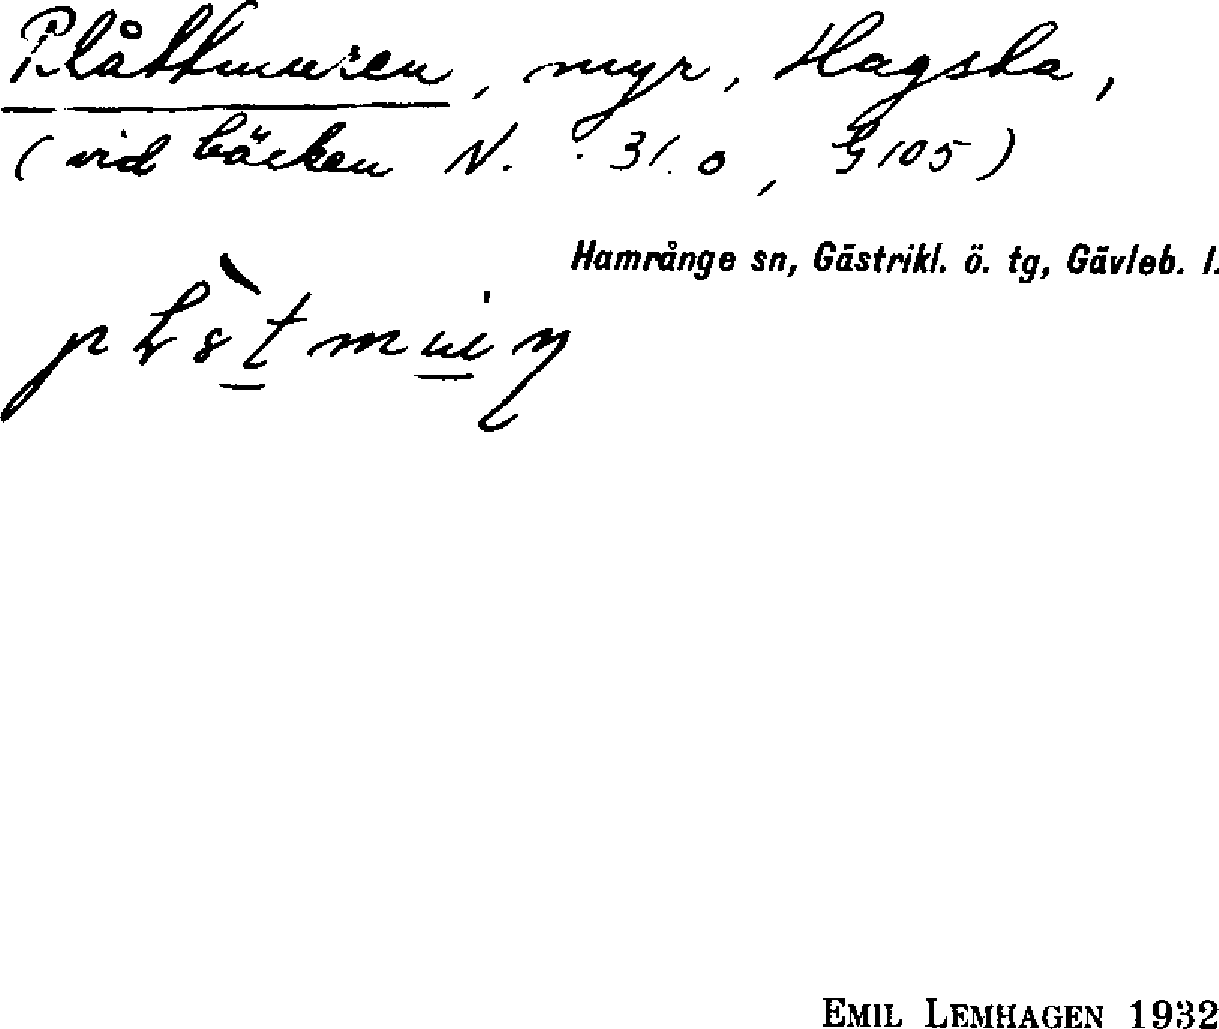 Plåttmuren, myr, Hagsta,
(vid bäcken N. 31.0, G 105)
Hamrånge sn, Gästrikl. ö. tg, Gävleb. l.
EMIL LEMHAGEN 1932